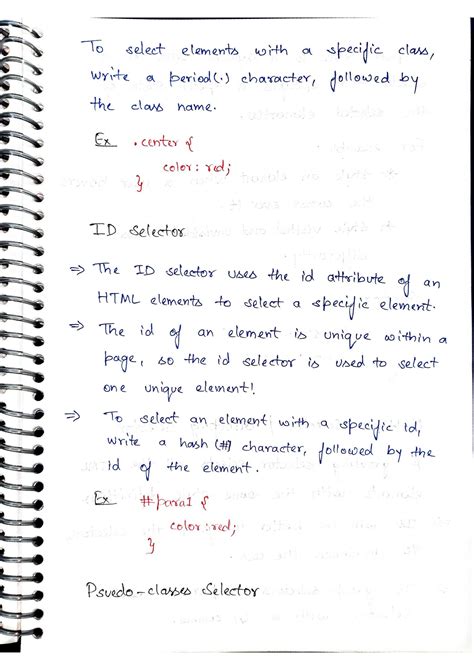 To select elements with a specific class,
write a period(.) character, followed by
the class name.
Ex .center {
color: red;
}
ID Selector
⇒ The ID selector uses the id attribute of an
HTML elements to select a specific element.
⇒ The id of an element is unique within a
page, so the id selector is used to select
one unique element!
⇒ To select an element with a specific id,
write a hash (#) character, followed by the
id of the element.
Ex #para1 {
color:red;
}
Psuedo-classes Selector